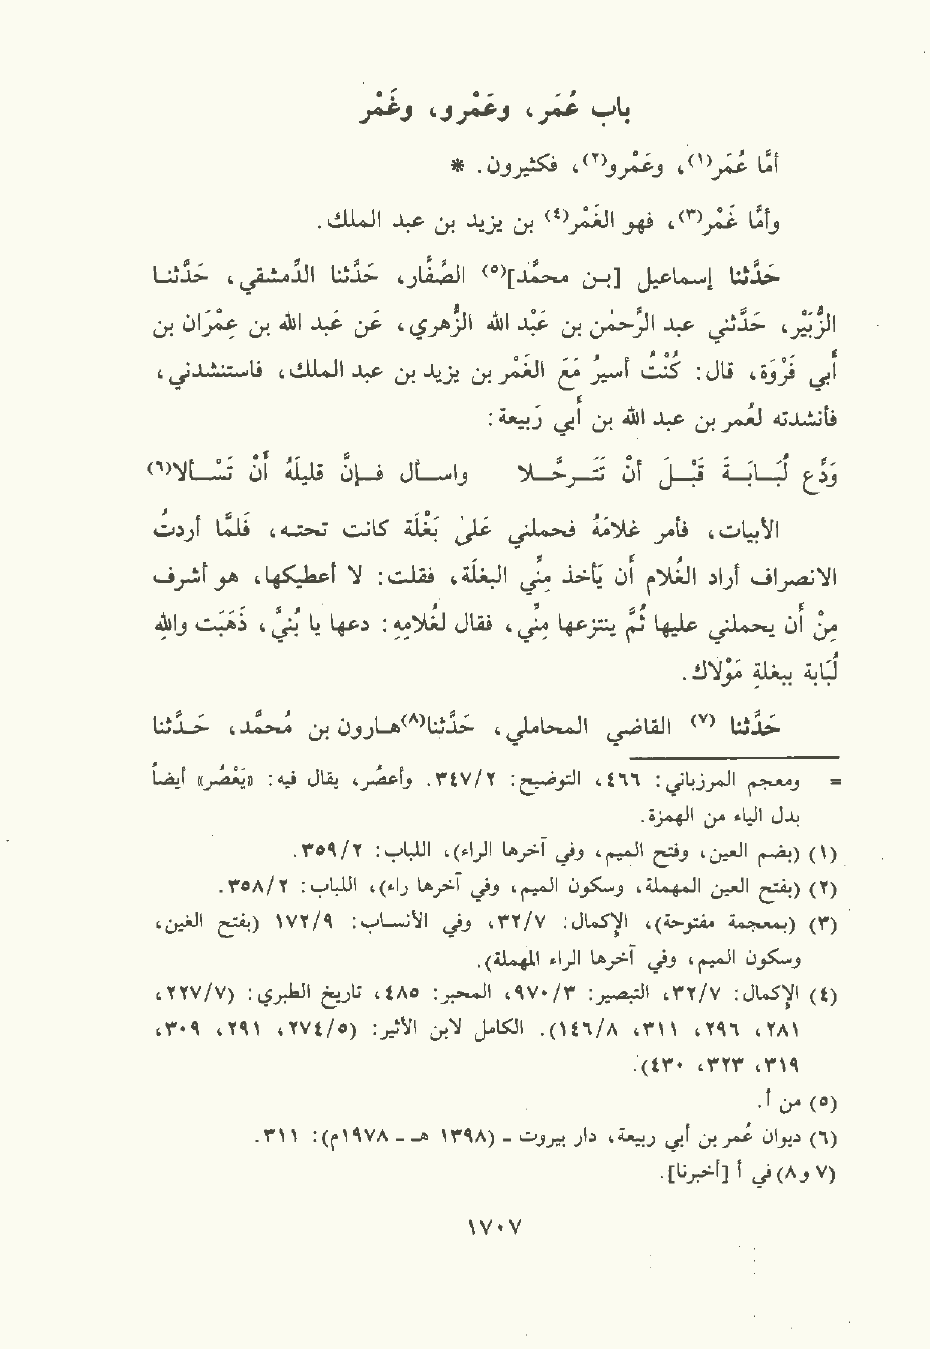 باب عُمَر، وعَمْرو، وغَمْر
أمَّا عُمَر(١)، وعَمْرو(٢)، فكثيرون. *
وأمَّا غَمْر(٣)، فهو الغَمْر(٤) بن يزيد بن عبد الملك.
حَدَّثنا إسماعيل [بـن محمَّد](٥) الصَّفَّار، حَدَّثنا الدِّمشقي، حَدَّثنـا
الزُّبَيْر، حَدَّثني عبد الرَّحمٰن بن عَبْد الله الزُّهري، عَن عَبد الله بن عِمْرَان بن
أبي فَرْوَة، قال: كُنْتُ أسيرُ مَعَ الغَمْر بن يزيد بن عبد الملك، فاستنشدني،
فأنشدته لعُمر بن عبد الله بن أبي رَبيعة:
وَدِّع لُبَـابَـةَ قَبْـلَ أنْ تَتَـرحَّـلا واسـأل فـإنَّ قليلَهُ أنْ تَسْـألا(٦)
الأبيات، فأمر غلامَهُ فحملني علىٰ بَغْلَة كانت تحتـه، فلمَّا أردتُ
الانصراف أراد الغُلام أن يَأخذ مِنِّي البغلَة، فقلت: لا أعطيكها، هو أشرف
مِنْ أن يحملني عليها ثُمَّ ينتزعها مِنِّي، فقال لغُلامِهِ: دعها يا بُنيَّ، ذَهَبَت والله
لُبَابة ببغلةِ مَوْلاك.
حَدَّثنا (٧) القاضي المحاملي، حَدَّثنا(٨)هـارون بن مُحمَّد، حَـدَّثنا
= ومعجم المرزباني: ٤٦٦، التوضيح: ٣٤٧/٢. وأعصُر، يقال فيه: «يَعْصُر» أيضاً
بدل الياء من الهمزة.
(١) (بضم العين، وفتح الميم، وفي آخرها الراء)، اللباب: ٣٥٩/٢.
(٢) (بفتح العين المهملة، وسكون الميم، وفي آخرها راء)، اللباب: ٣٥٨/٢.
(٣) (بمعجمة مفتوحة)، الإكمال: ٣٢/٧، وفي الأنسـاب: ١٧٢/٩ (بفتح الغين،
وسكون الميم، وفي آخرها الراء المهملة).
(٤) الإكمال: ٣٢/٧، التبصير: ٩٧٠/٣، المحبر: ٤٨٥، تاريخ الطبري: (٢٢٧/٧،
٢٨١، ٢٩٦، ٣١١، ١٤٦/٨). الكامل لابن الأثير: (٢٧٤/٥، ٢٩١، ٣٠٩،
٣١٩، ٣٢٣، ٤٣٠).
(٥) من أ.
(٦) ديوان عُمر بن أبي ربيعة، دار بيروت - (١٣٩٨ هـ - ١٩٧٨م): ٣١١.
(٧ و ٨) في أ [أخبرنا].
١٧٠٧